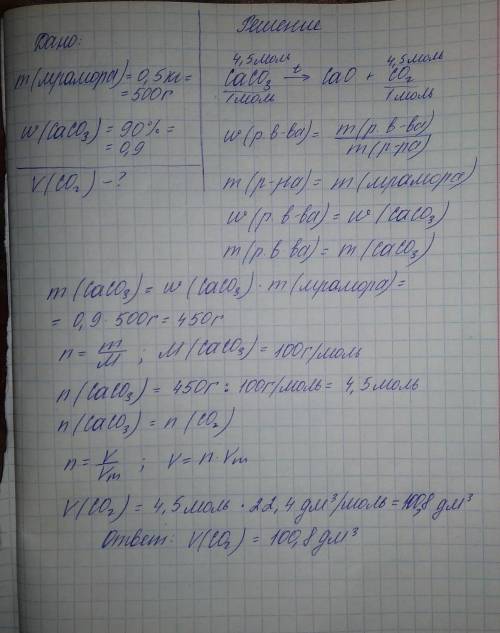 Дано:
m(мрамора) = 0,5кг =
= 500г
w(CaCO₃) = 90% =
= 0,9
V(CO₂) - ?
Решение
4,5моль 4,5моль
CaCO₃ t→ CaO + CO₂
1моль 1моль
w(р.в-ва) = m(р.в-ва)
m(р-ра)
m(р-ра) = m(мрамора)
w(р.в-ва) = w(CaCO₃)
m(р.в-ва) = m(CaCO₃)
m(CaCO₃) = w(CaCO₃) · m(мрамора) =
= 0,9 · 500г = 450г
n = m/M ; M(CaCO₃) = 100г/моль
n(CaCO₃) = 450г : 100г/моль = 4,5моль
n(CaCO₃) = n(CO₂)
n = V/Vm ; V = n · Vm
V(CO₂) = 4,5моль · 22,4 дм³/моль = 100,8 дм³
Ответ: V(CO₂) = 100,8 дм³